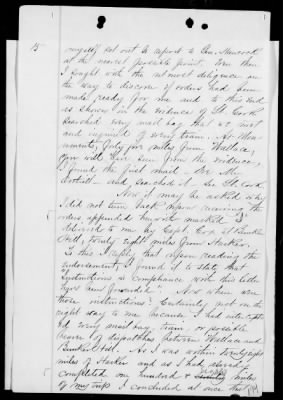 15
myself set out to report to Gen. Hancock
at the nearest possible point. Even then
I fought with the utmost diligence on
the way to discover if orders had been
made ready for me and to this end
as shown in the evidence of Lt. Cook
searched every mail bag that we met
and inquired of every train. At Mon-
uments, forty five miles from Wallace,
you will have seen from the evidence,
I found the first mail
and searched it. See Lt. Cook.
Now it may be asked why
I did not turn back upon receiving the
orders appended herewith marked
delivered to me by Capt. Cox at Bunker
Hill, twenty eight miles from Harker.
To this I reply that upon reading the
endorsement I found it to state that
"Instructions in compliance with this letter
have been forwarded." Now where were
those instructions? Certainly not on the
right way to me because I had intercept-
ed every mail bag, train, or possible
bearer of dispatches between Wallace and
Bunker Hill. As I was within twenty eight
miles of Harker and as I had already
completed one hundred & miles
of my trip I concluded at once that